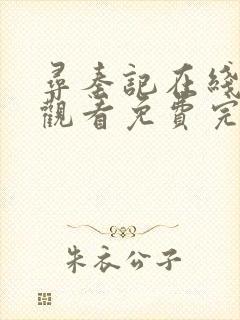 尋秦記在綫
觀看免費完
朱衣公子